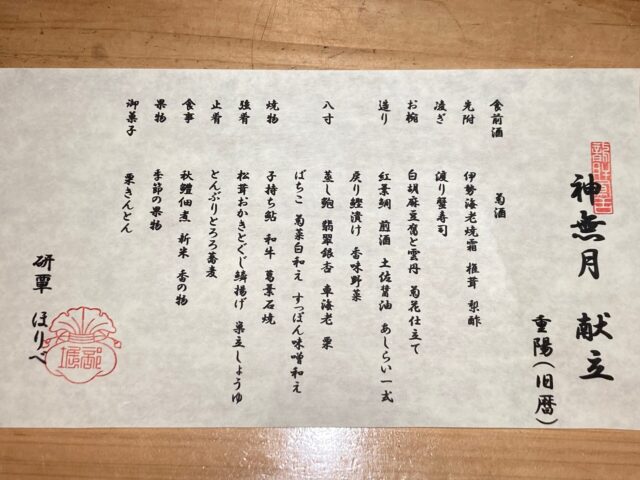 神無月 献立
重陽(旧暦)
食前酒 菊酒
先附 伊勢海老焼霜 椎茸 梨酢
凌ぎ 渡り蟹寿司
お椀 白胡麻豆腐と雲丹 菊花仕立て
造り 紅葉鯛 煎酒 土佐醤油 あしらい一式
戻り鰹漬け 香味野菜
八寸 蒸し鮑 翡翠銀杏 車海老 栗
ばちこ 菊菜白和え すっぽん味噌和え
焼物 子持ち鮎 和牛 葛葉石焼
強肴 松茸おかきとぐじ鱗揚げ 果立しょうゆ
止肴 とんぶりとろろ蕎麦
食事 秋鱧佃煮 新米 香の物
果物 季節の果物
御菓子 栗きんとん
研覃 ほりべ